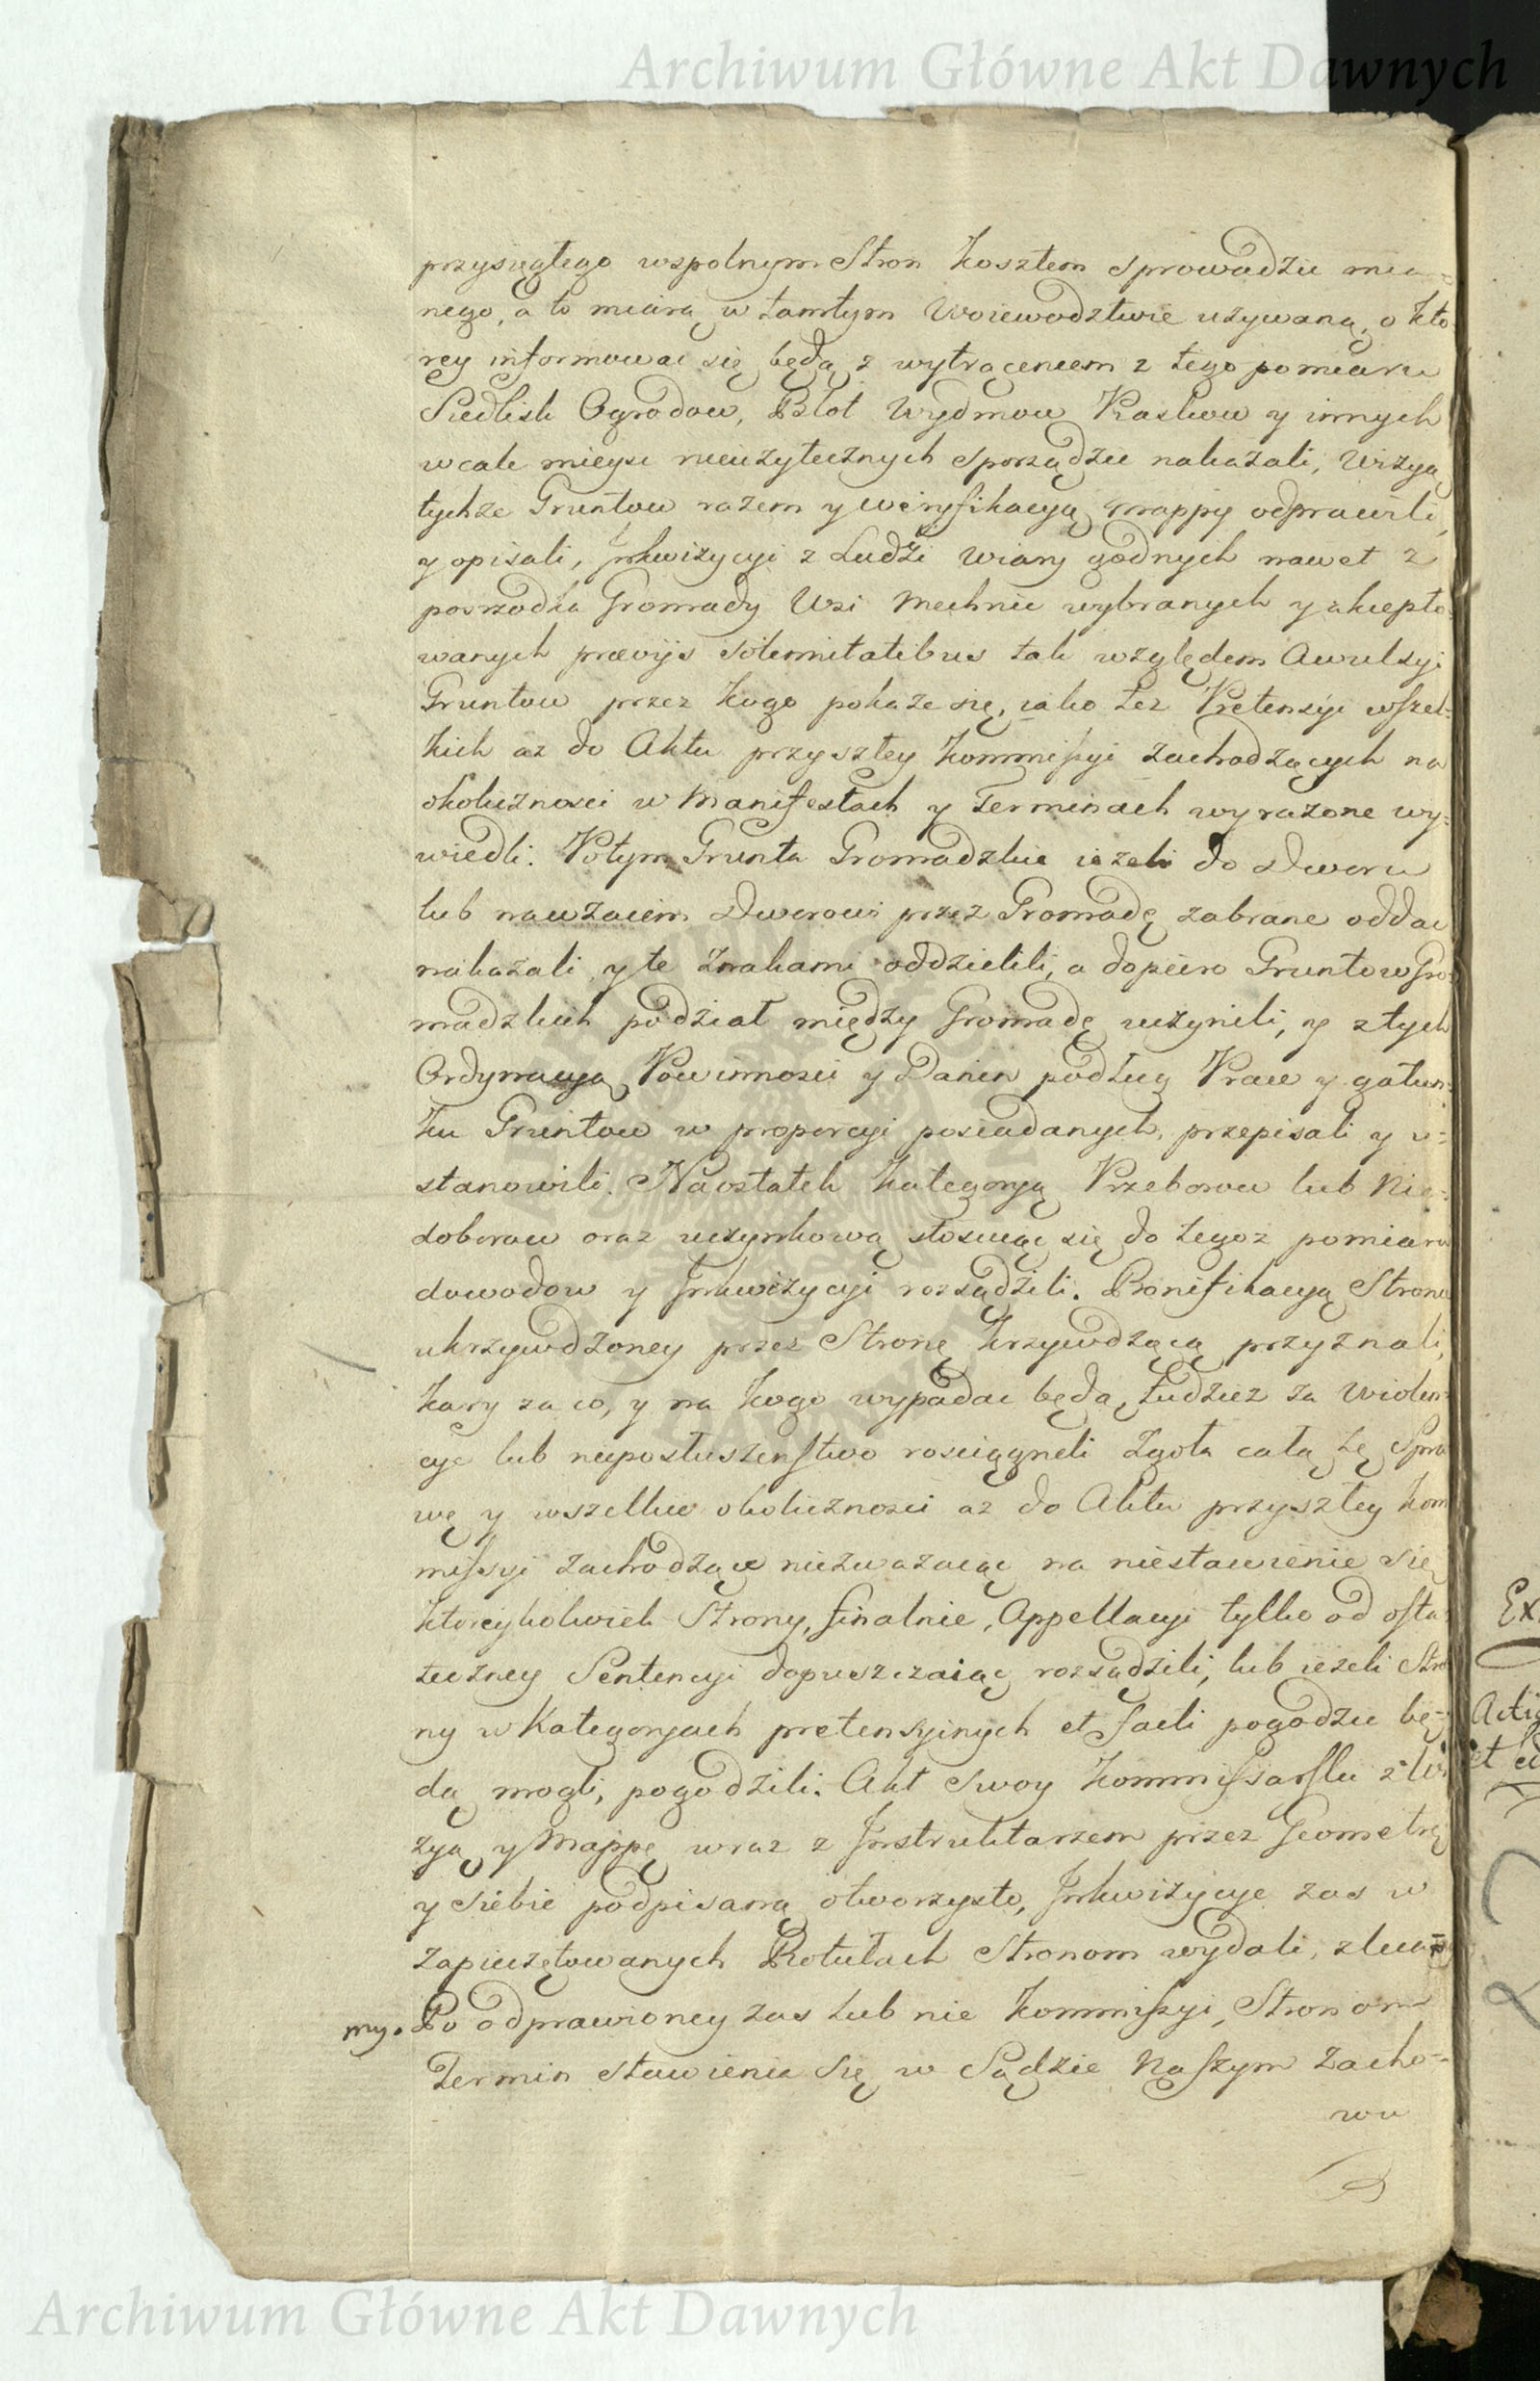 Archiwum Główne Akt Dawnych
przysięgłego wspolnym Stron Kosztem sprowadzić mia=
nego, a to miarą w tamtym Woiewodztwie używaną, o kto
rey informować się będą z wytrąceniem z tego pomiaru
Siedlisk Ogrodow, Błot Wydmow Piaskow y innych
wcale mieysc nieużytecznych sporządzić nakazali, Wizyą
tychże Gruntow razem y weryfikacyą mappy odprawili,
y opisali, Inkwizycyi z Ludzi wiary godnych nawet z
posrzodka Gromady Wsi Mechnic wybranych y akcepto
wanych prævijs Solemnitatibus tak względem Awulsyi
Gruntow przez kogo pokaże się, iako też Pretensyi wszel=
kich aż do Aktu przyszłey Kommissyi zachodzących na
okoliczności w Manifestach y Terminach wyrażone wy=
wiedli. Potym Grunta Gromadzkie ieżeli do Dworu
lub nawzaiem Dworowi przez Gromadę zabrane oddać
nakazali y te Znakami oddzielili, a dopiero Gruntow Gro=
madzkich podział między Gromadę uczynili, y z tych
Ordynacyą Powinności y Danin podług Praw y gatun=
ku Gruntow w proporcyi posiadanych, przepisali y u=
stanowili. Naostatek Kategoryą Przeborow lub Nie=
doborow oraz uczynkową stosuiąc się do tegoż pomiaru
dowodow y Inkwizycyi rozsądzili. Bonifikacyą Stronie
ukrzywdzoney przez Stronę krzywdzącą przyznali,
Kary za co, y na kogo wypadać będą, tudzież za wiolen=
cye lub nieposłuszenstwo rościągneli zgoła całą tę Spra
wę y wszelkie okoliczności aż do Aktu przyszłey Kom
missyi zachodzące niezważaiąc na niestawienie się
ktoreykolwiek Strony, finalnie, Appellacyi tylko od osta
teczney Sentencyi dopuszczaiąc rozsądzili, lub ieżeli Stro
ny w Kategoryach pretensyinych et facti pogodzić bę=
dą mogli, pogodzili. Akt swoy Kommissarski z Wi
zyą y Mappę wraz z Instruktarzem przez Geometrę
y siebie podpisaną otworzysto, Inkwizycye zas w
zapieczętowanych Rotułach Stronom wydali, zleca=
my. Po odprawioney zas lub nie Kommissyi, Stronom
Termin stawienia się w Sądzie Naszym zacho=
wu
Ex
et
Archiwum Główne Akt Dawnych